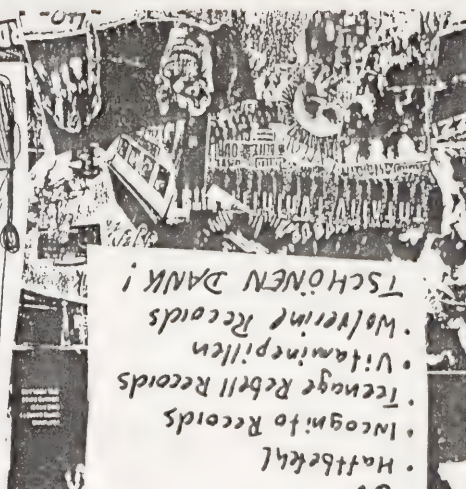 · Haftbefehl
· Incognito Records
· Teenage Rebell Records
· Vitaminepillen
· Wolverine Records
TSCHÖNEN DANK!
-40-